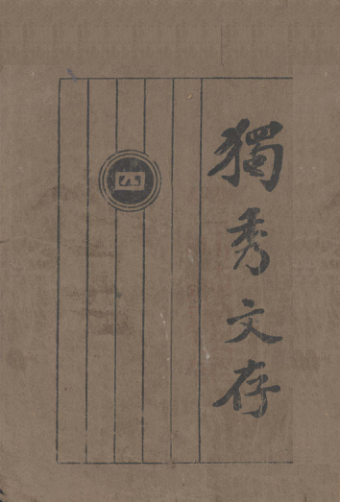 獨秀文存
四